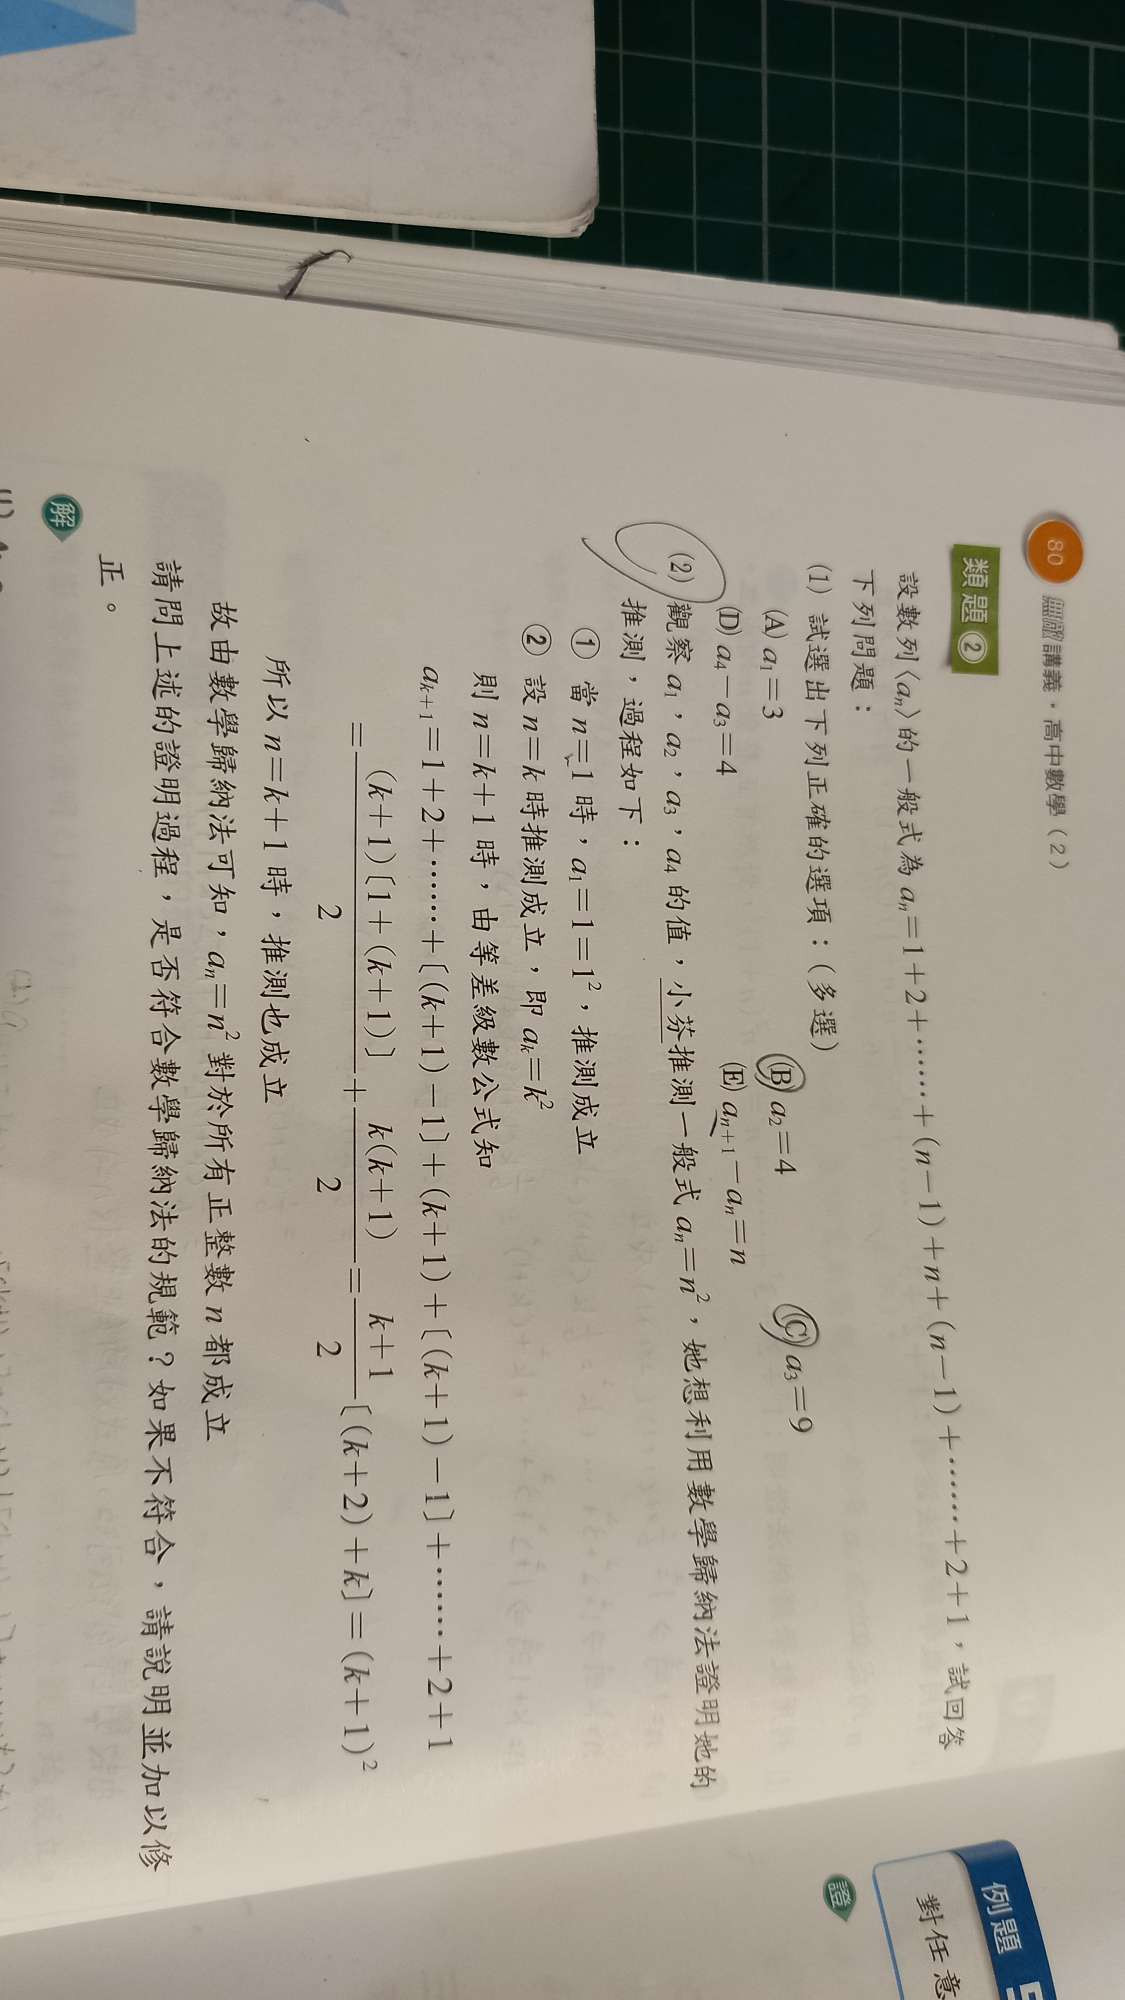 80 講義・高中數學(2)
類題②
設數列⟨aₙ⟩的一般式為 aₙ=1+2+……+(n−1)+n+(n−1)+……+2+1，試回答
下列問題：
(1) 試選出下列正確的選項：(多選)
(A) a₁=3 (B) a₂=4 (C) a₃=9
(D) a₄−a₃=4 (E) aₙ₊₁−aₙ=n
(2) 觀察 a₁，a₂，a₃，a₄ 的值，小芬推測一般式 aₙ=n²，她想利用數學歸納法證明她的
推測，過程如下：
① 當 n=1 時，a₁=1=1²，推測成立
② 設 n=k 時推測成立，即 aₖ=k²
則 n=k+1 時，由等差級數公式知
aₖ₊₁=1+2+……+〔(k+1)−1〕+(k+1)+〔(k+1)−1〕+……+2+1
=(k+1)〔1+(k+1)〕/2+k(k+1)/2=k+1/2〔(k+2)+k〕=(k+1)²
所以 n=k+1 時，推測也成立
故由數學歸納法可知，aₙ=n² 對於所有正整數 n 都成立
請問上述的證明過程，是否符合數學歸納法的規範？如果不符合，請說明並加以修
正。
解
例題
對任意
證